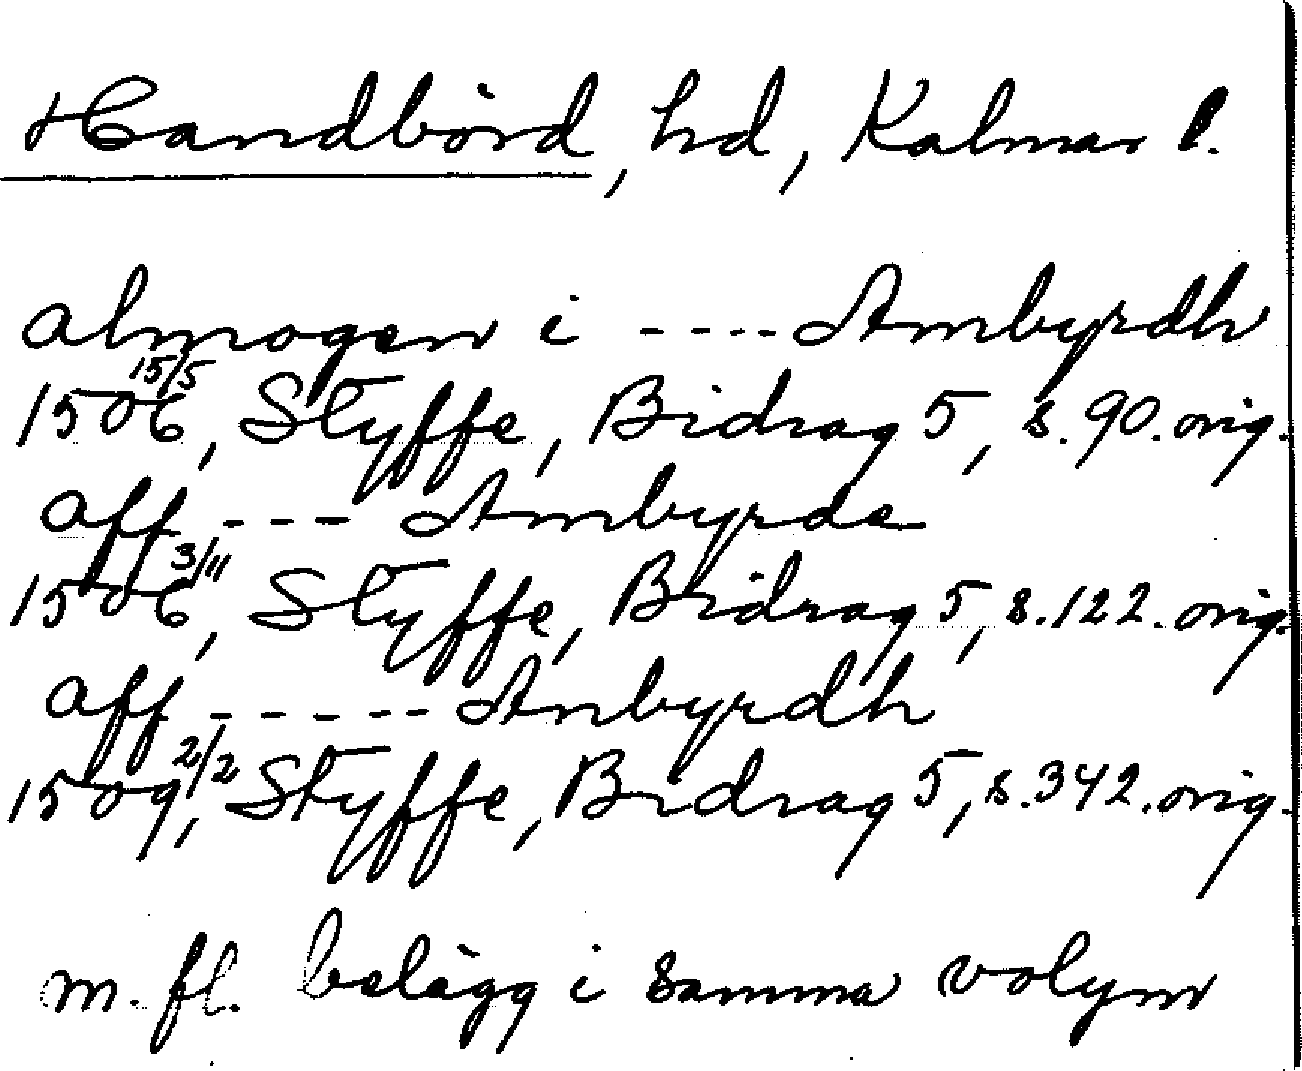 Handbörd, hd, Kalmar l.
almogen i ---- Ambyrdh
1506 15/5, Styffe, Bidrag 5, s. 90. orig.
aff --- Ambyrde
1506 3/11, Styffe, Bidrag 5, s. 122. orig.
aff ----- Anbyrdh
1509 2/2, Styffe, Bidrag 5, s. 342. orig.
m. fl. belägg i samma volym